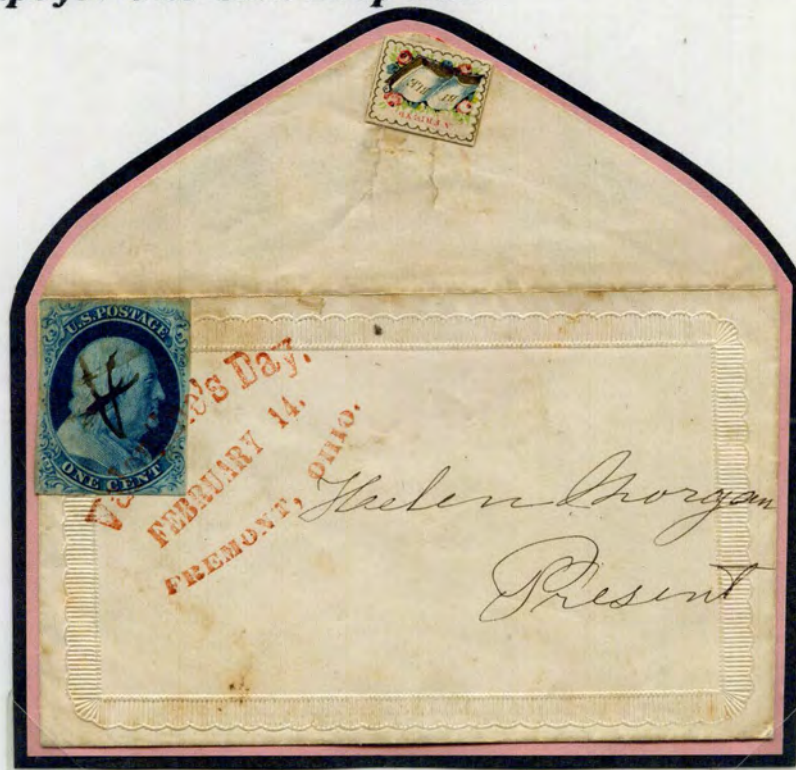 U.S. POSTAGE
ONE CENT
Day,
FEBRUARY 14.
FREMONT, OHIO.
Helen Morgan
Present